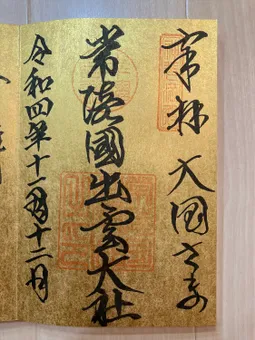 奉拝 大国さま
常陸國出雲大社
令和四年十一月十二日